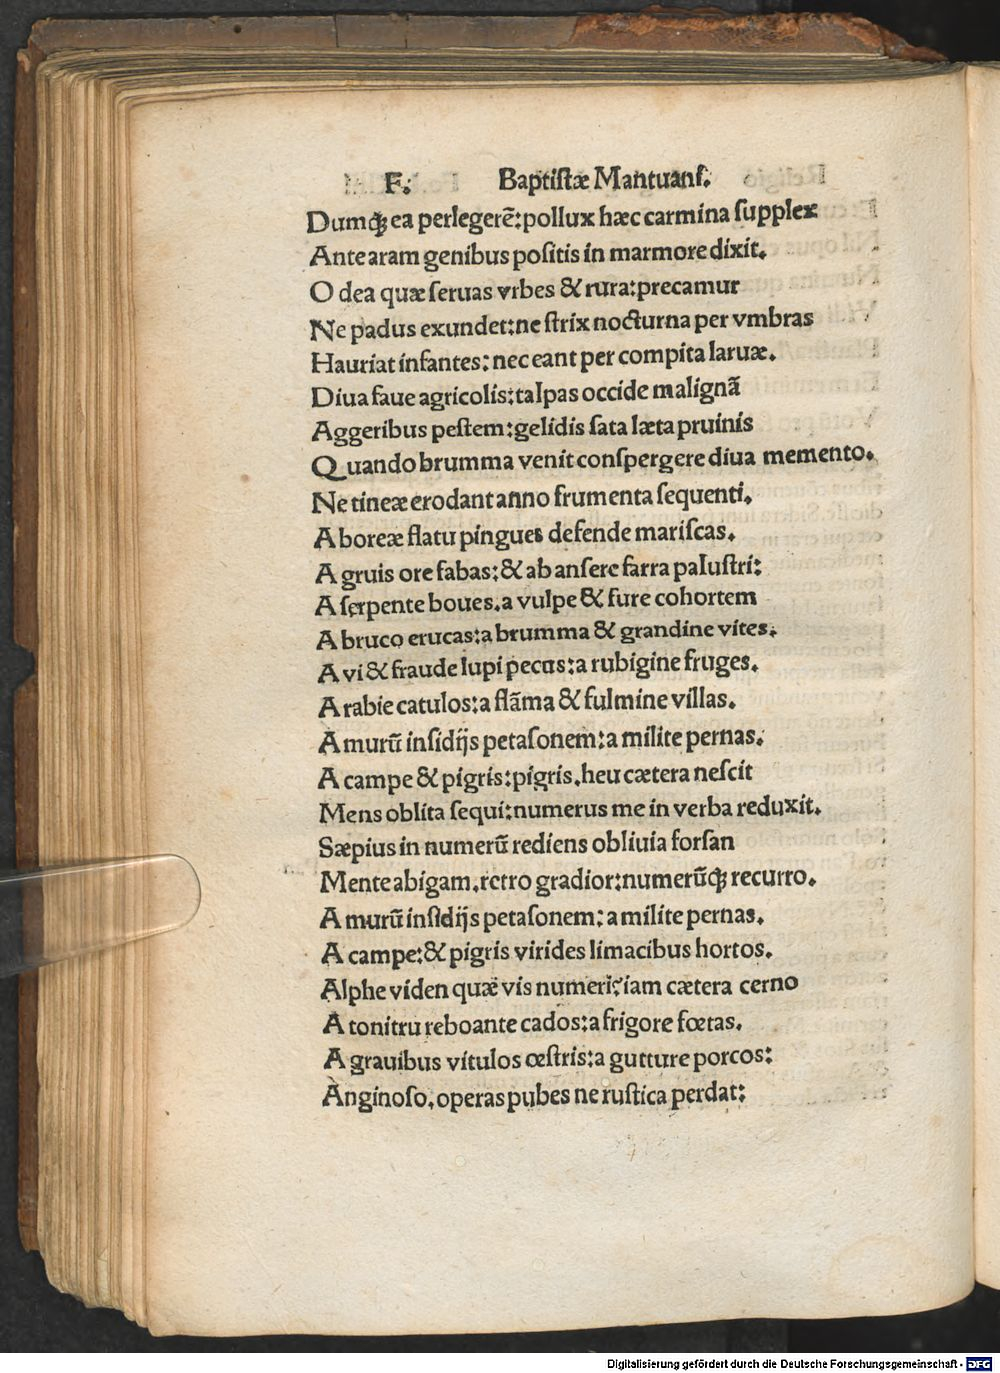 F. Baptistæ Mantuanſ.
Dumqꝫ ea perlegerē:pollux hæc carmina ſupplex
Ante aram genibus poſitis in marmore dixit.
O dea quæ ſeruas vrbes & rura:precamur
Ne padus exundet:ne ſtrix nocturna per vmbras
Hauriat infantes: nec eant per compita laruæ.
Diua faue agricolis:talpas occide malignā
Aggeribus peſtem:gelidis ſata læta pruinis
Quando brumma venit conſpergere diua memento.
Ne tineæ erodant anno frumenta ſequenti.
A boreæ flatu pingues defende mariſcas.
A gruis ore fabas:& ab anſere farra paluſtri:
A ſerpente boues.a vulpe & fure cohortem
A bruco erucas:a brumma & grandine vites.
A vi & fraude lupi pecus:a rubigine fruges.
A rabie catulos:a flāma & fulmine villas.
A murū inſidijs petaſonem:a milite pernas.
A campe & pigris:pigris.heu cætera neſcit
Mens oblita ſequi:numerus me in verba reduxit.
Sæpius in numerū rediens obliuia forſan
Mente abigam.retro gradior:numerūqꝫ recurro.
A murū inſidijs petaſonem: a milite pernas.
A campe:& pigris virides limacibus hortos.
Alphe viden quæ vis numeri?iam cætera cerno
A tonitru reboante cados:a frigore fœtas.
A grauibus vitulos œſtris:a gutture porcos:
Anginoſo.operas pubes ne ruſtica perdat:
Digitalisierung gefördert durch die Deutsche Forschungsgemeinschaft - DFG